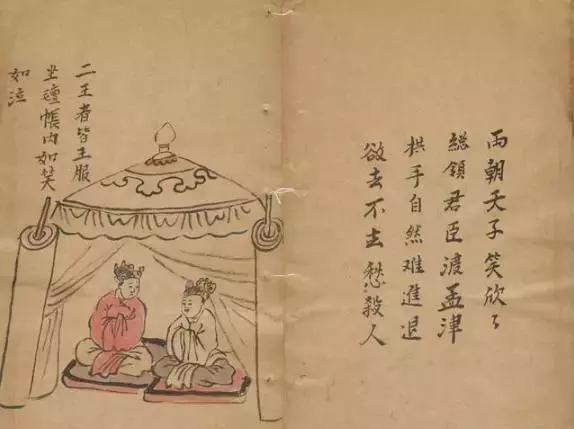 两朝天子笑欣〻
緫領君臣渡孟津
拱手自然难進退
欲去不去愁殺人
二王者皆王服
坐氊帳内如笑
如泣